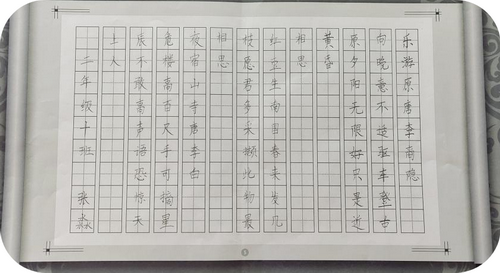 乐游原唐李商隐
向晚意不适驱车登古
原夕阳无限好只是近
黄昏
相思
红豆生南国春来发几
枝愿君多采撷此物最
相思
夜宿山寺唐李白
危楼高百尺手可摘星
辰不敢高声语恐惊天
上人
二年级十班 张淼